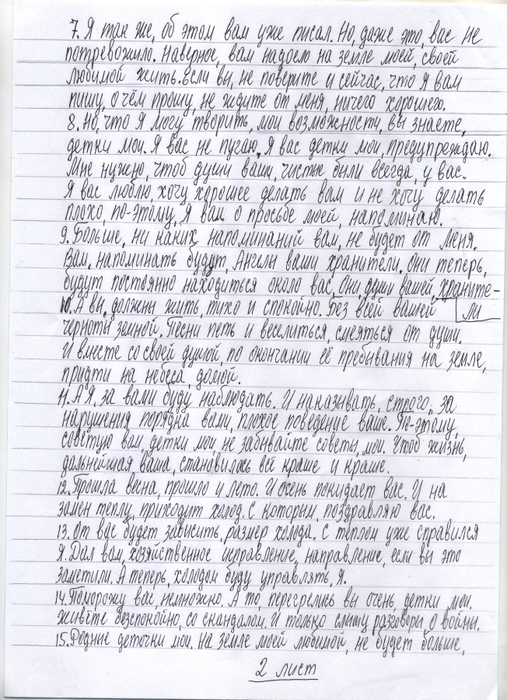 7. Я так же, об этом вам уже писал. Но, даже это, вас не
потревожило. Наверное, вам надоело на земле моей, своей
любимой жить. Если вы, не поверите и сейчас, что Я вам
пишу, о чём прошу, не ждите от меня, ничего хорошего.
8. Но, что Я могу творить, мои возможности, вы знаете,
детки мои. Я вас не пугаю, Я вас детки мои, предупреждаю.
Мне нужно, чтоб души ваши, чистые были всегда, у вас.
Я вас люблю, хочу хорошее делать вам и не хочу делать
плохо, по-этому, Я вам о просьбе моей, напоминаю.
9. Больше, ни каких напоминаний вам, не будет от меня.
Вам, напоминать будут, Ангелы ваши хранители. Они теперь,
будут постоянно находиться около вас. Они, души вашей, храните-
ли
10. А вы, должны жить, тихо и спокойно. Без всей вашей
черноты земной. Песни петь и веселиться, смеяться от души.
И вместе со своей душой, по окончании её пребывания на земле,
придти на небеса, домой.
11. А Я, за вами буду наблюдать. И наказывать, строго, за
нарушения порядка вами, плохое поведение ваше. По-этому,
советую вам, детки мои не забывайте советы, мои. Чтоб жизнь,
дальнейшая ваша, становилась всё краше и краше.
12. Прошла весна, прошло и лето. И осень покидает вас. И на
замен теплу, приходит холод. С которым, поздравляю вас.
13. От вас будет зависить, размер холода. С теплом уже справился
Я. Дал вам, хозяйственное исправление, направление, если вы это
заметили. А теперь, холодом буду управлять, Я.
14. Поморожу вас, немножко. А то, перегрелись вы очень детки мои.
Живёте безспокойно, со скандалом. И только слышу разговоры, о войны.
15. Родные деточки мои. На земле моей любимой, не будет больше,
2 лист